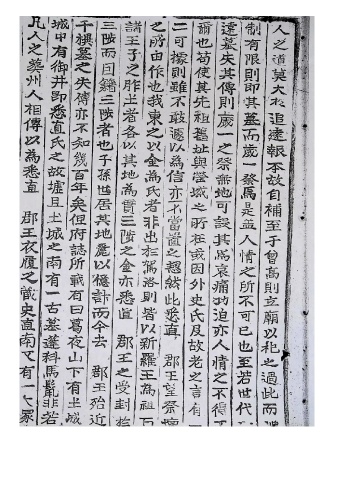 人之道莫大於追遠報本故自補至于曾高則立廟以祀之過此而
制有限則即其墓而歲一祭焉是盖人情之所不可已也至若世代
遠墓失其傳則歲一之祭無地可設其為哀痛切迫亦人情之不得
爾也苟使其先祖舊址與塋域之所在或因外史氏及故老之言有
二可據則雖不敢遽以為信亦不當置之越然此悉直 郡王望祭壇
之所由作也我東之以金為氏者非出於駕洛則皆以新羅王為祖
諸王子之胙土者各以其地為貫三陟之金亦悉直 郡王之受封
三陟而因籍三陟者也子孫世居其地麗以億計而今去 郡王殆近
千禩墓之失傳亦不知幾百年矣但府誌所載有曰葛夜山下有土城
城中有御井即悉直氏之故墟且土城之南有一古墓蓬科馬鬣非若
凡人之葬州人相傳以為悉直 郡王衣履之藏史直南又有一大冢